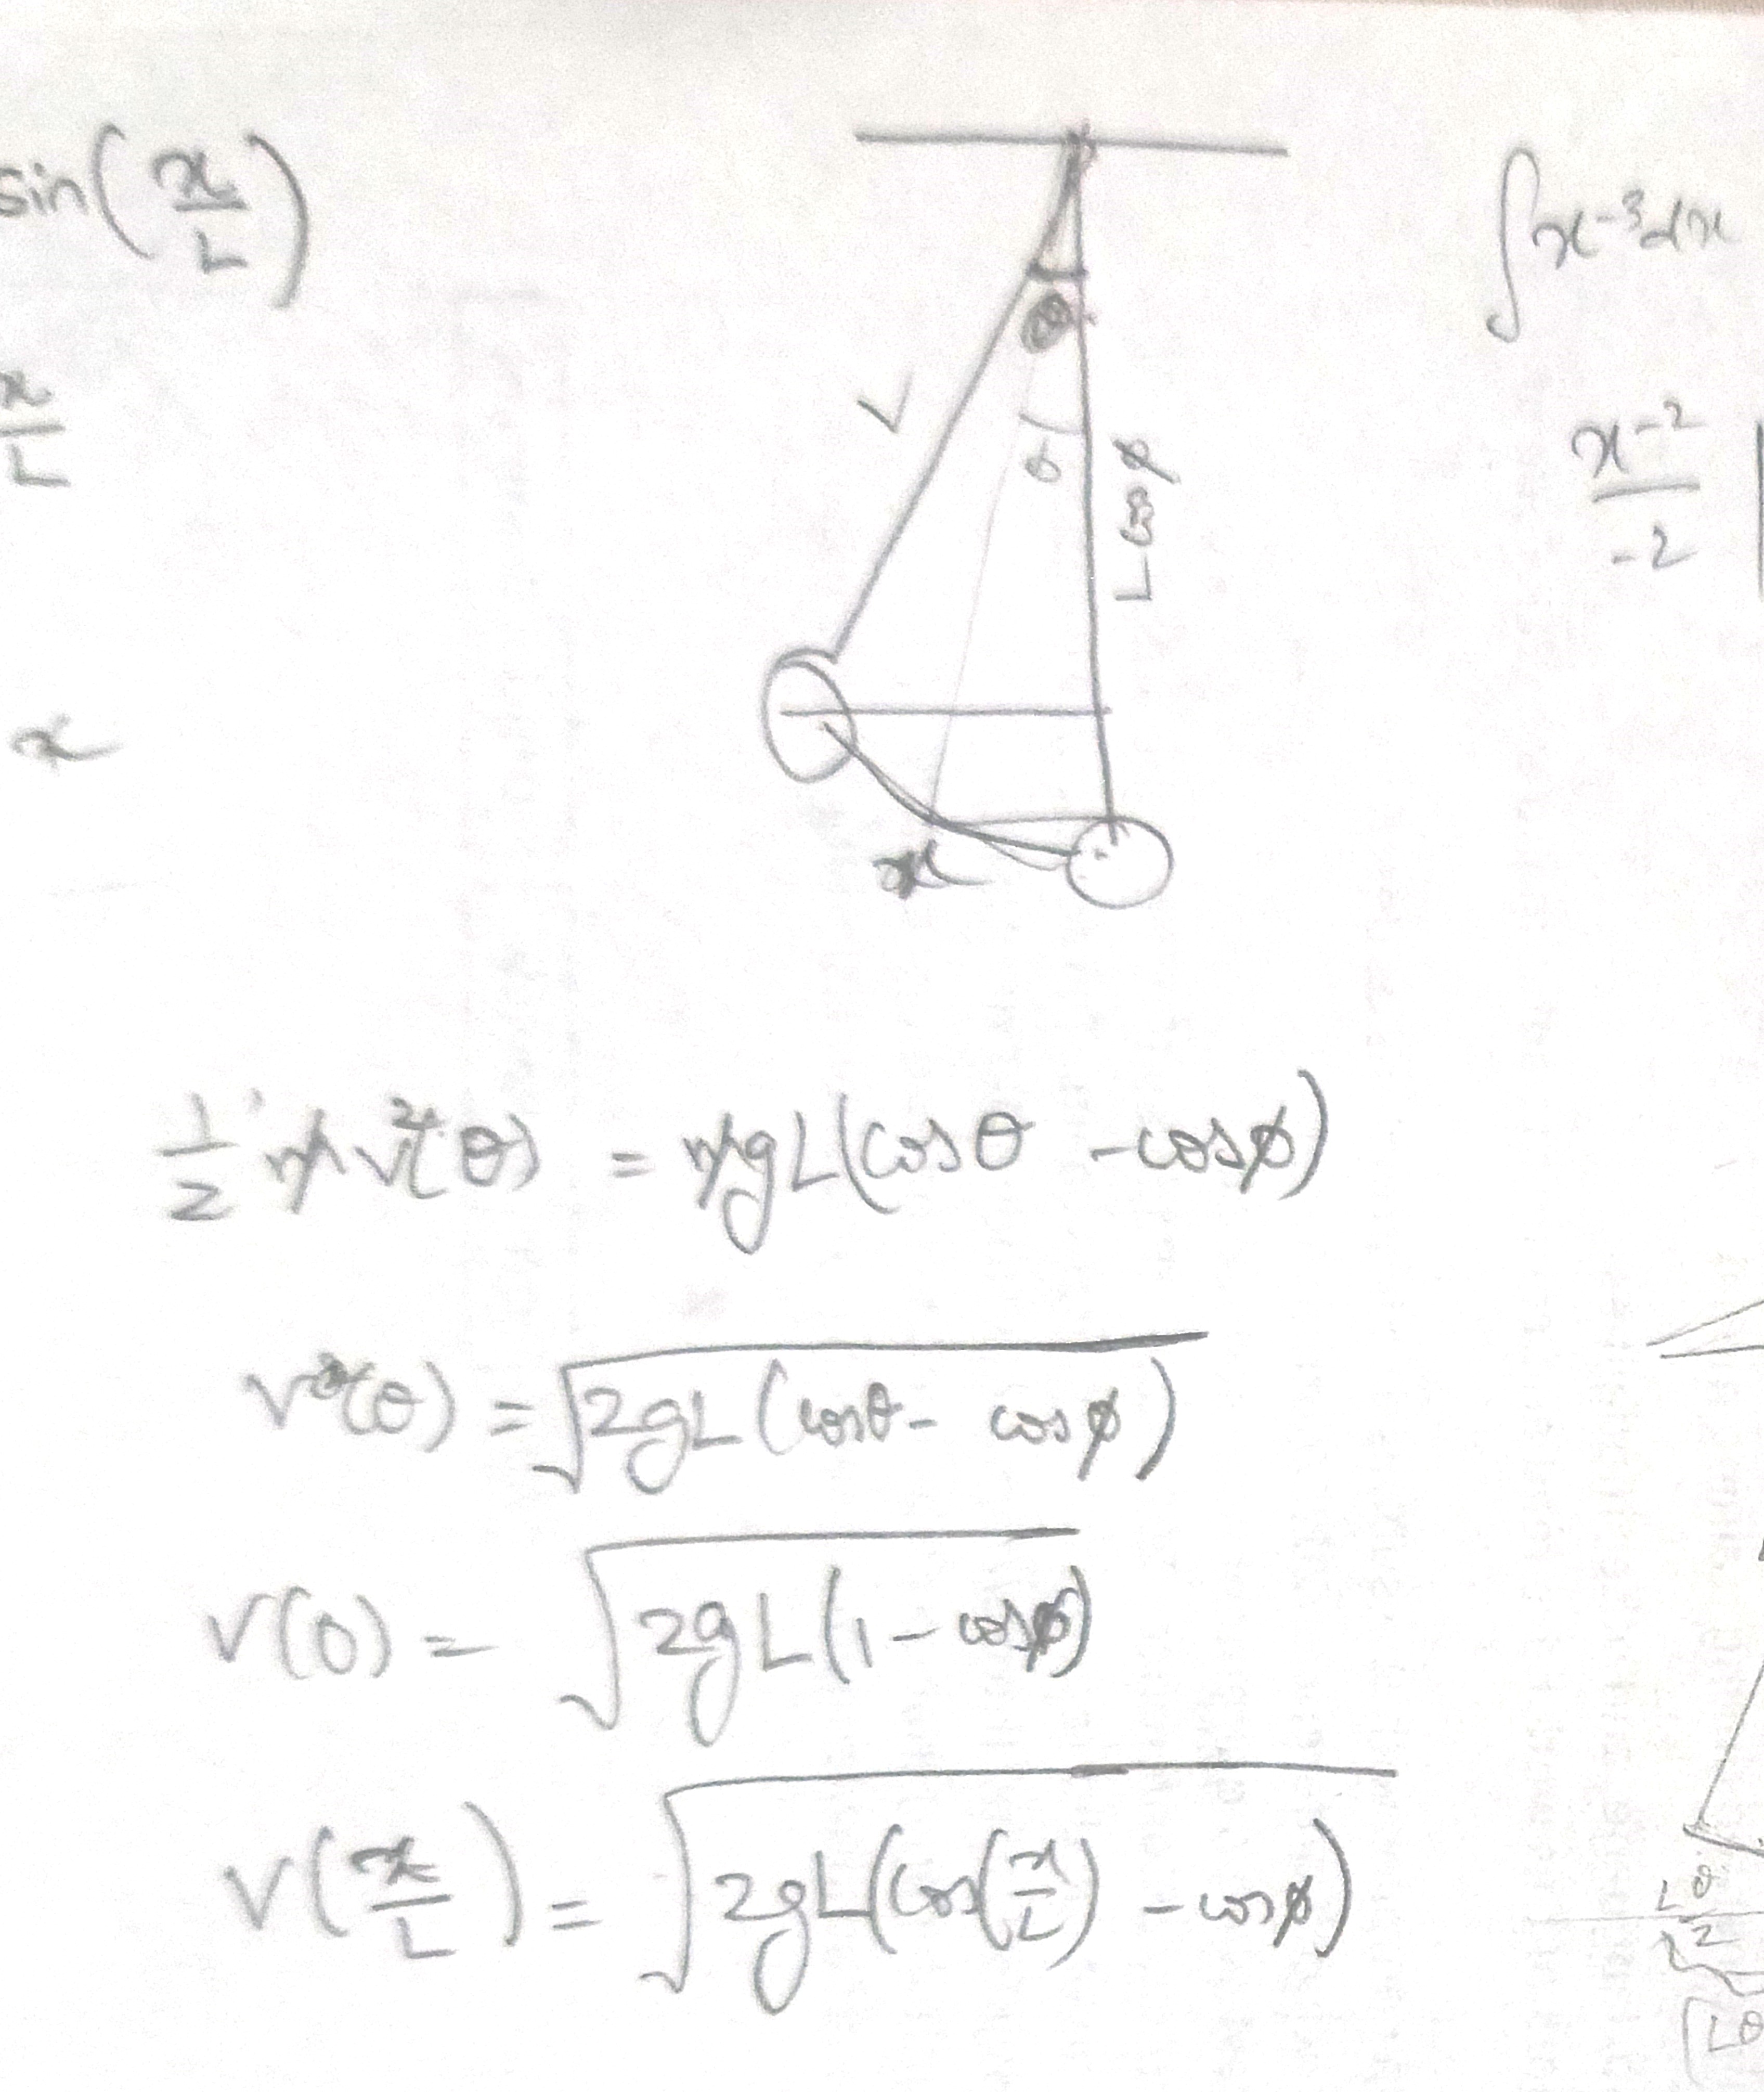 sin(x/L)
x/L
x
θ
L cosφ
x
∫x⁻³dx
x⁻²/-2
1/2 mv²(θ) = mgL(cosθ - cosφ)
v(θ) = √2gL(cosθ - cosφ)
v(0) = √2gL(1 - cosφ)
v(x/L) = √2gL(cos(x/L) - cosφ)
Lθ
2
Lθ